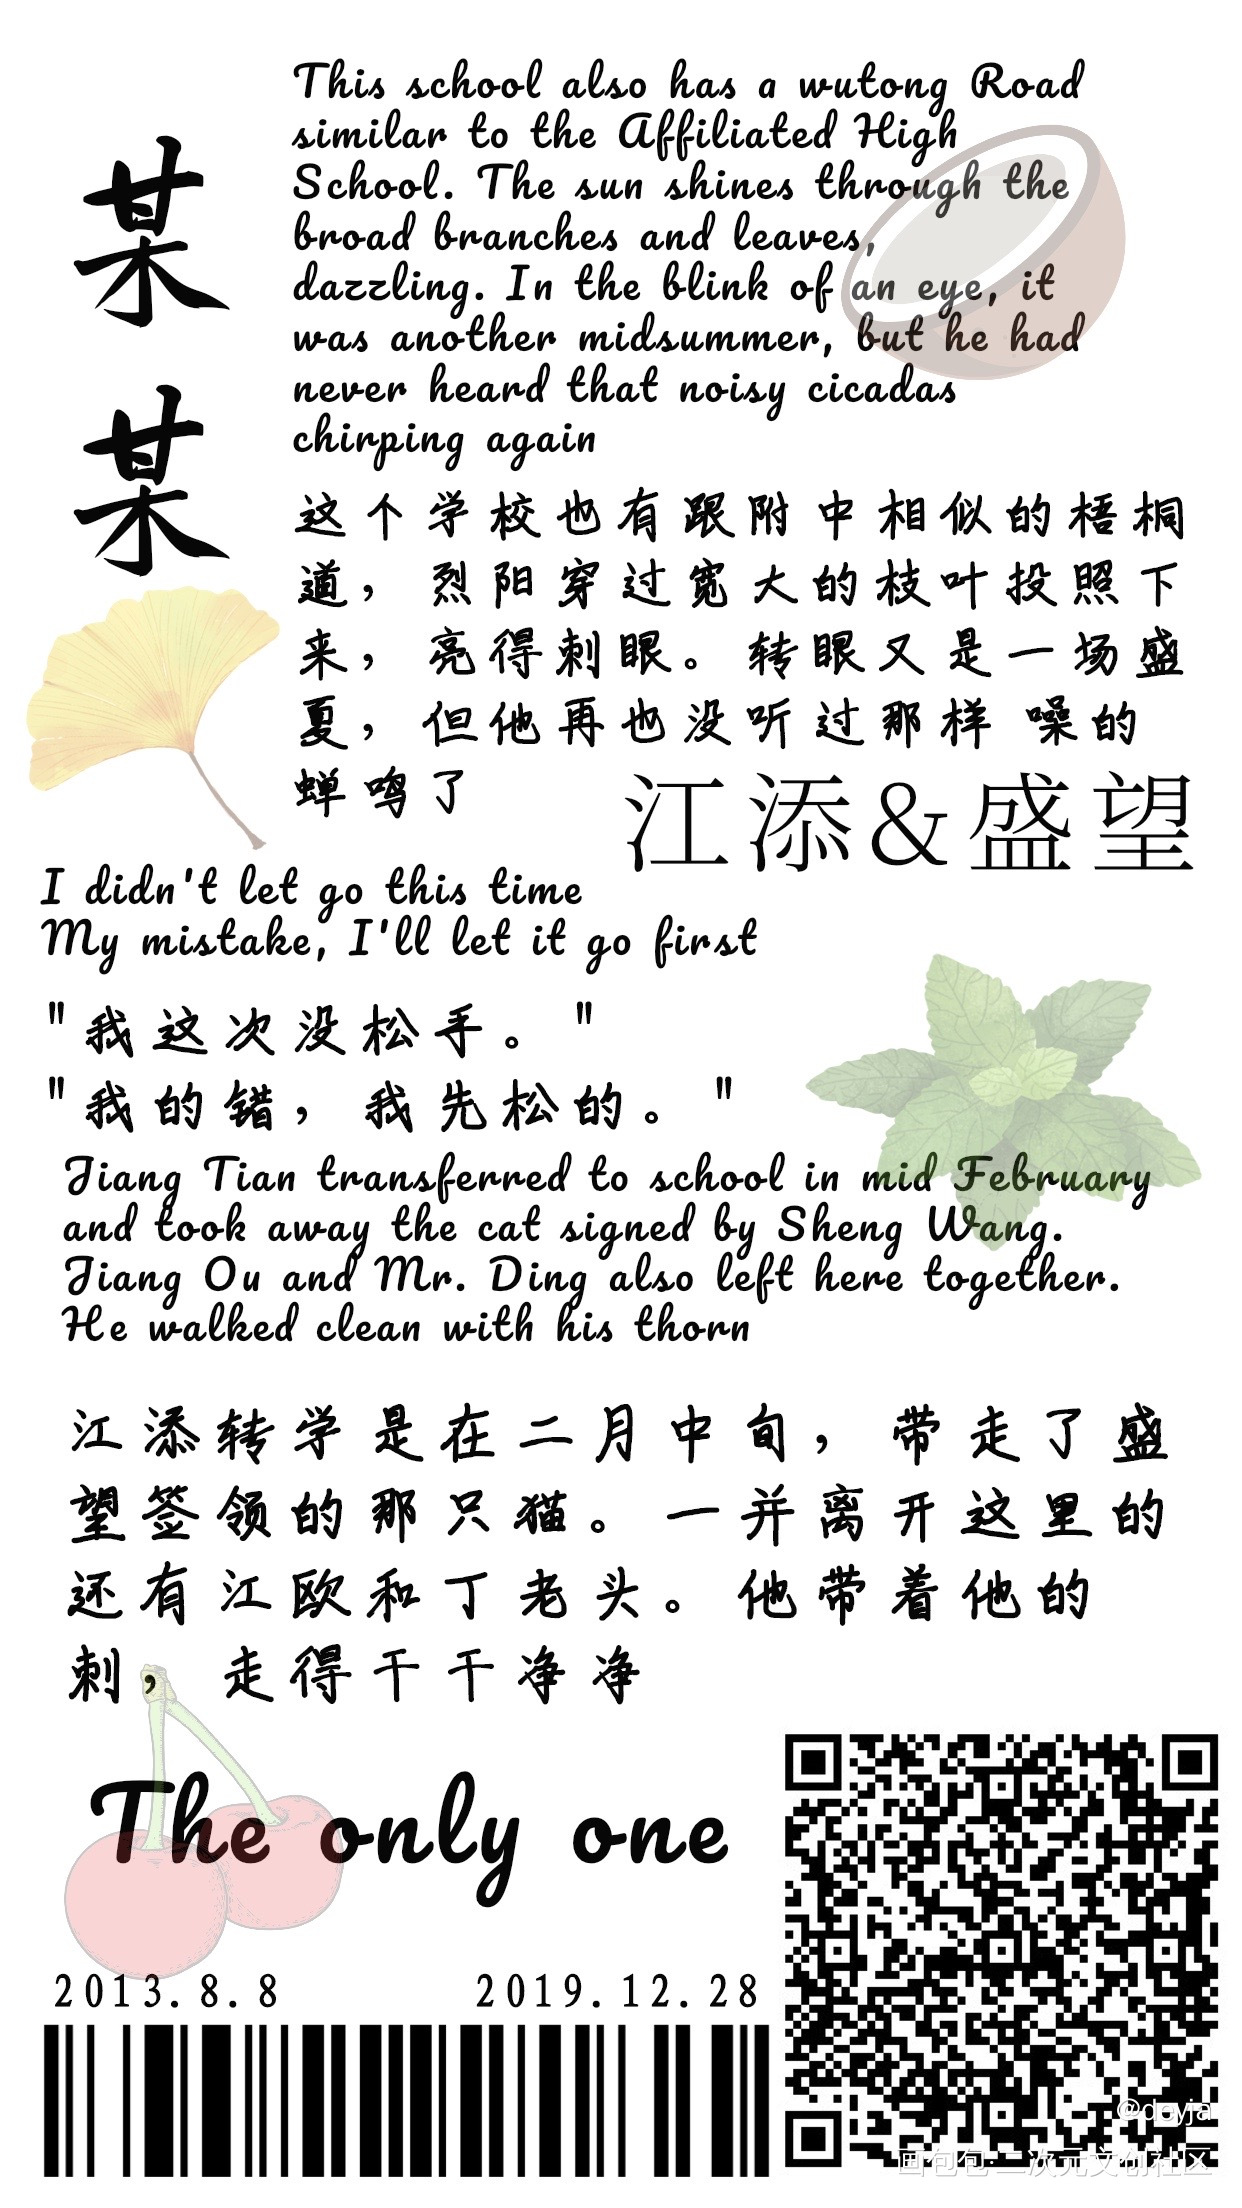 某某
This school also has a wutong Road
similar to the Affiliated High
School. The sun shines through the
broad branches and leaves,
dazzling. In the blink of an eye, it
was another midsummer, but he had
never heard that noisy cicadas
chirping again
这个学校也有跟附中相似的梧桐
道，烈阳穿过宽大的枝叶投照下
来，亮得刺眼。转眼又是一场盛
夏，但他再也没听过那样 噪的
蝉鸣了
江添&盛望
I didn't let go this time
My mistake, I'll let it go first
"我这次没松手。"
"我的错，我先松的。"
Jiang Tian transferred to school in mid February
and took away the cat signed by Sheng Wang.
Jiang Ou and Mr. Ding also left here together.
He walked clean with his thorn
江添转学是在二月中旬，带走了盛
望签领的那只猫。一并离开这里的
还有江欧和丁老头。他带着他的
刺，走得干干净净
The only one
2013.8.8 2019.12.28
@deyja
画包包·二次元文创社区